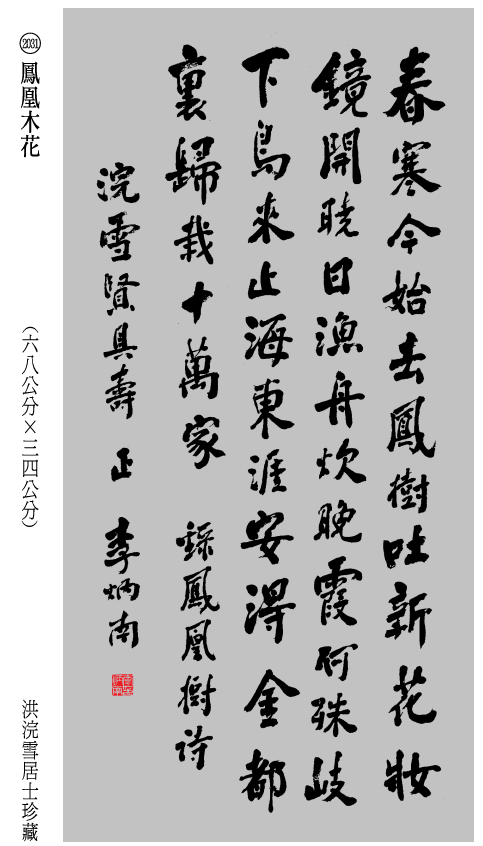 春寒今始去鳳樹吐新花妝
鏡開曉日漁舟炊晚霞何殊岐
下鳥來止海東涯安得金都
裏歸栽十萬家 錄鳳凰樹詩
浣雪賢具壽 正 李炳南
2031 鳳凰木花
（六八公分×三四公分）
洪浣雪居士珍藏